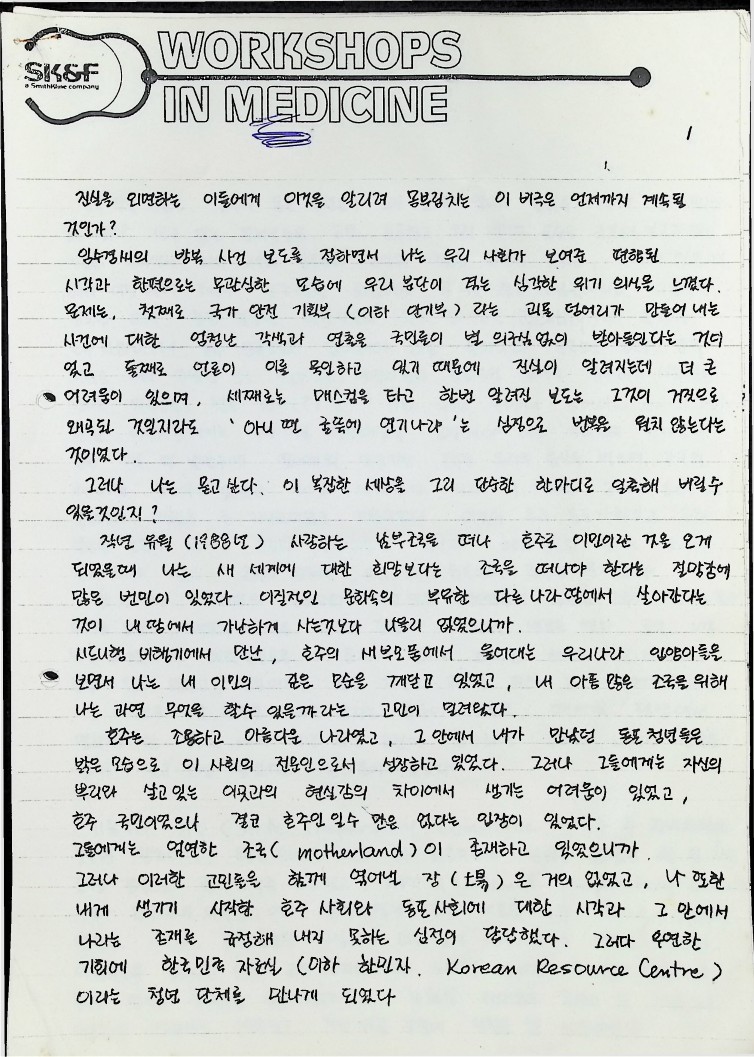 WORKSHOPS
IN MEDICINE
SK&F
a SmithKline company
1
진실을 외면하는 이들에게 이것을 알리려 몸부림치는 이 비극은 언제까지 계속될
것인가?
임수경씨의 방북 사건 보도를 접하면서 나는 우리 사회가 보여준 편향된
시각과 한편으로는 무관심한 모습에 우리 분단이 겪는 심각한 위기 의식을 느꼈다.
문제는, 첫째로 국가 안전 기획부 (이하 안기부) 라는 괴물 덩어리가 만들어 내는
사건에 대한 엄청난 각색과 연출을 국민들이 별 의구심없이 받아들인다는 것이
었고 둘째로 언론이 이를 묵인하고 있기 때문에 진실이 알려지는데 더 큰
어려움이 있으며, 세째로는 매스컴을 타고 한번 알려진 보도는 그것이 거짓으로
왜곡된 것일지라도 '아니 땐 굴뚝에 연기나랴'는 심정으로 번복을 원치 않는다는
것이었다.
그러나 나는 묻고 싶다. 이 복잡한 세상을 그리 단순한 한마디로 일축해 버릴수
있을것인지?
작년 유월 (1988년) 사랑하는 남부조국을 떠나 호주로 이민이란 것을 오게
되었을때 나는 새 세계에 대한 희망보다는 조국을 떠나야 한다는 절망감에
많은 번민이 있었다. 이질적인 문화속의 부유한 다른 나라 땅에서 살아간다는
것이 내 땅에서 가난하게 사는것보다 나을리 없었으니까.
시드니행 비행기에서 만난, 호주의 새부모품에서 울어대는 우리나라 입양아들을
보면서 나는 내 이민의 깊은 모순을 깨닫고 있었고, 내 아픔 많은 조국을 위해
나는 과연 무엇을 할수 있을까라는 고민이 밀려왔다.
호주는 조용하고 아름다운 나라였고, 그 안에서 내가 만났던 동포 청년들은
밝은 모습으로 이 사회의 전문인으로서 성장하고 있었다. 그러나 그들에게는 자신의
뿌리와 살고있는 이곳과의 현실감의 차이에서 생기는 어려움이 있었고,
호주 국민이었으나 결코 호주인일수 만은 없다는 입장이 있었다.
그들에게는 엄연한 조국( motherland )이 존재하고 있었으니까.
그러나 이러한 고민들을 함께 엮어낼 장 (場) 은 거의 없었고, 나 또한
내게 생기기 시작한 호주 사회와 동포 사회에 대한 시각과 그 안에서
나라는 존재를 규정해 내지 못하는 심정이 답답했다. 그러다 우연한
기회에 한국민족 자료실 (이하 한민자. Korean Resource Centre)
이라는 청년 단체를 만나게 되었다